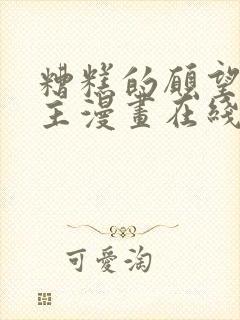 糟糕的願望
主漫畫在綫
可愛淘